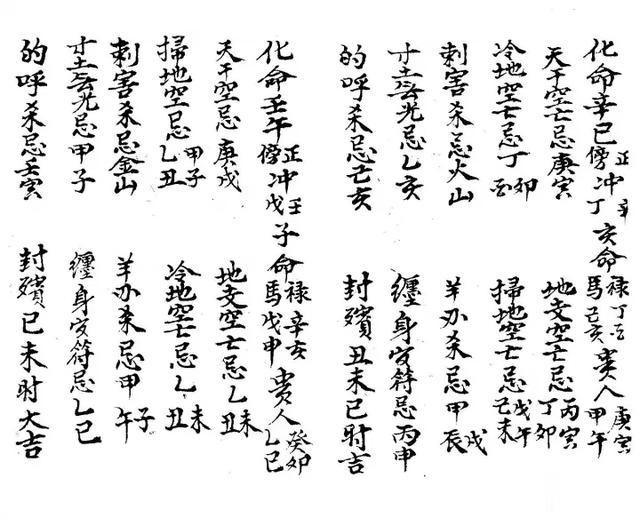 化命辛巳正傍冲辛丁亥命禄丁酉馬己亥貴人庚寅甲午
天干空亡忌庚寅 地支空亡忌丙寅丁卯
冷地空亡忌丁卯酉 掃地空亡忌戊午己未
刺害杀忌火山 羊刃杀忌甲辰戌
寸土無光忌乙亥 纏身符忌丙申
的呼杀忌己亥 封殯丑未巳时吉
化命壬午正傍冲壬戊子命禄辛亥馬戊申貴人癸卯乙巳
天干空忌庚戌 地支空亡忌乙丑未
掃地空忌甲子乙丑 冷地空亡忌乙丑未
刺害杀忌金山 羊刃杀忌甲子午
寸土無光忌甲子 纏身符忌乙巳
的呼杀忌壬寅 封殯巳未时大吉